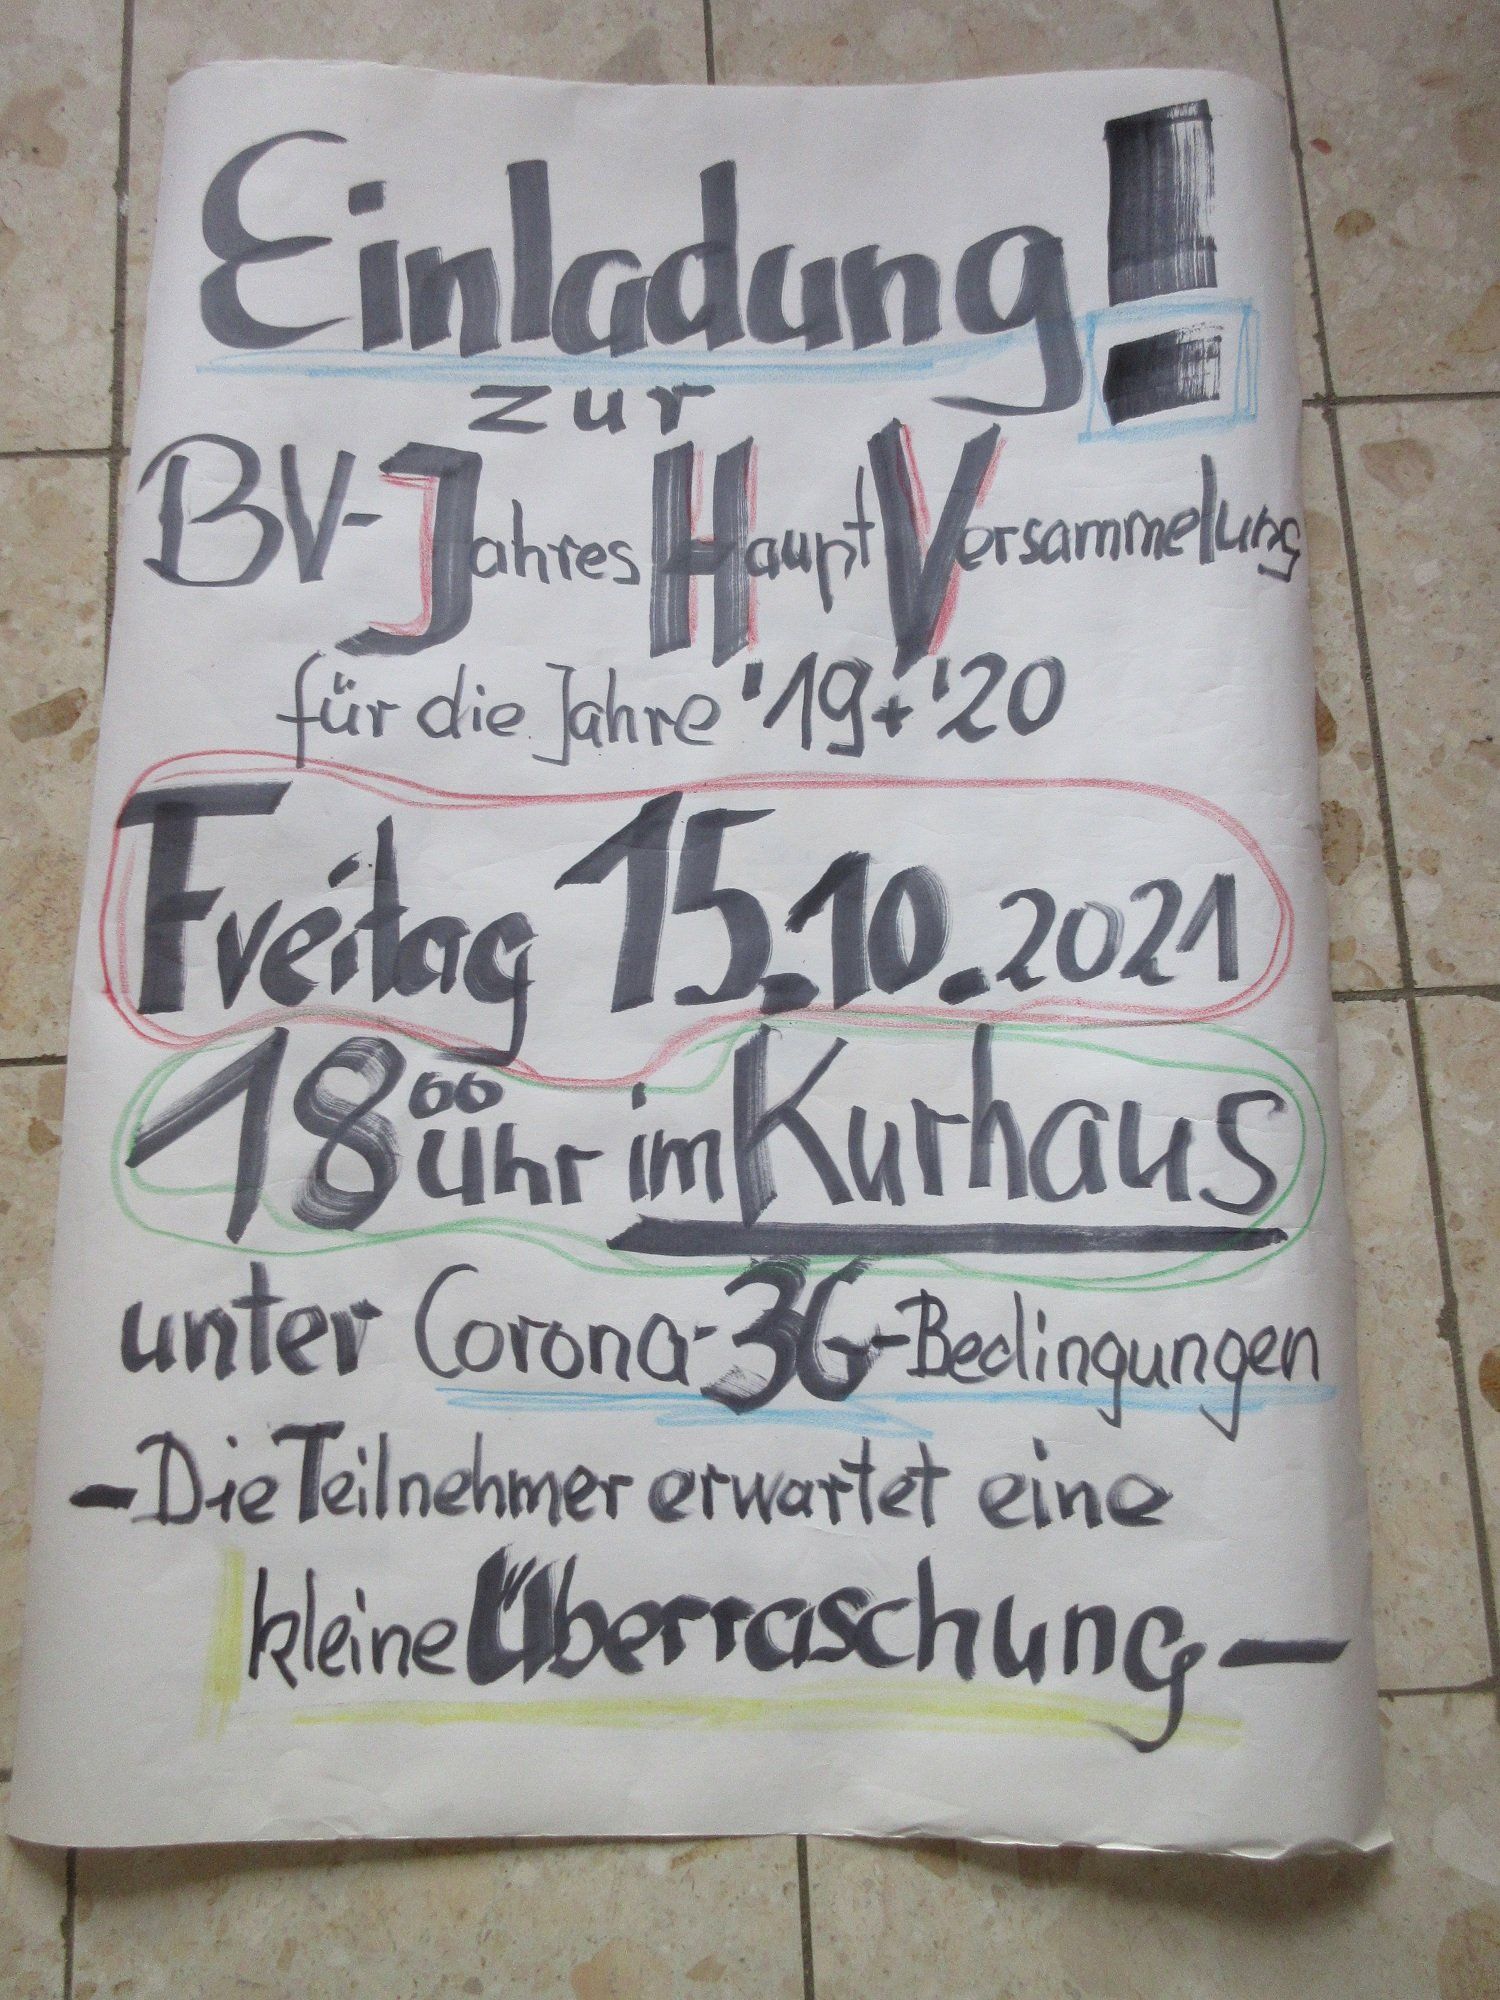 Einladung!
zur
BV-JahresHauptVersammelung
für die Jahre '19+'20
Freitag 15.10.2021
18°° Uhr im Kurhaus
unter Corona-3G-Bedingungen
-Die Teilnehmer erwartet eine
kleine Überraschung-